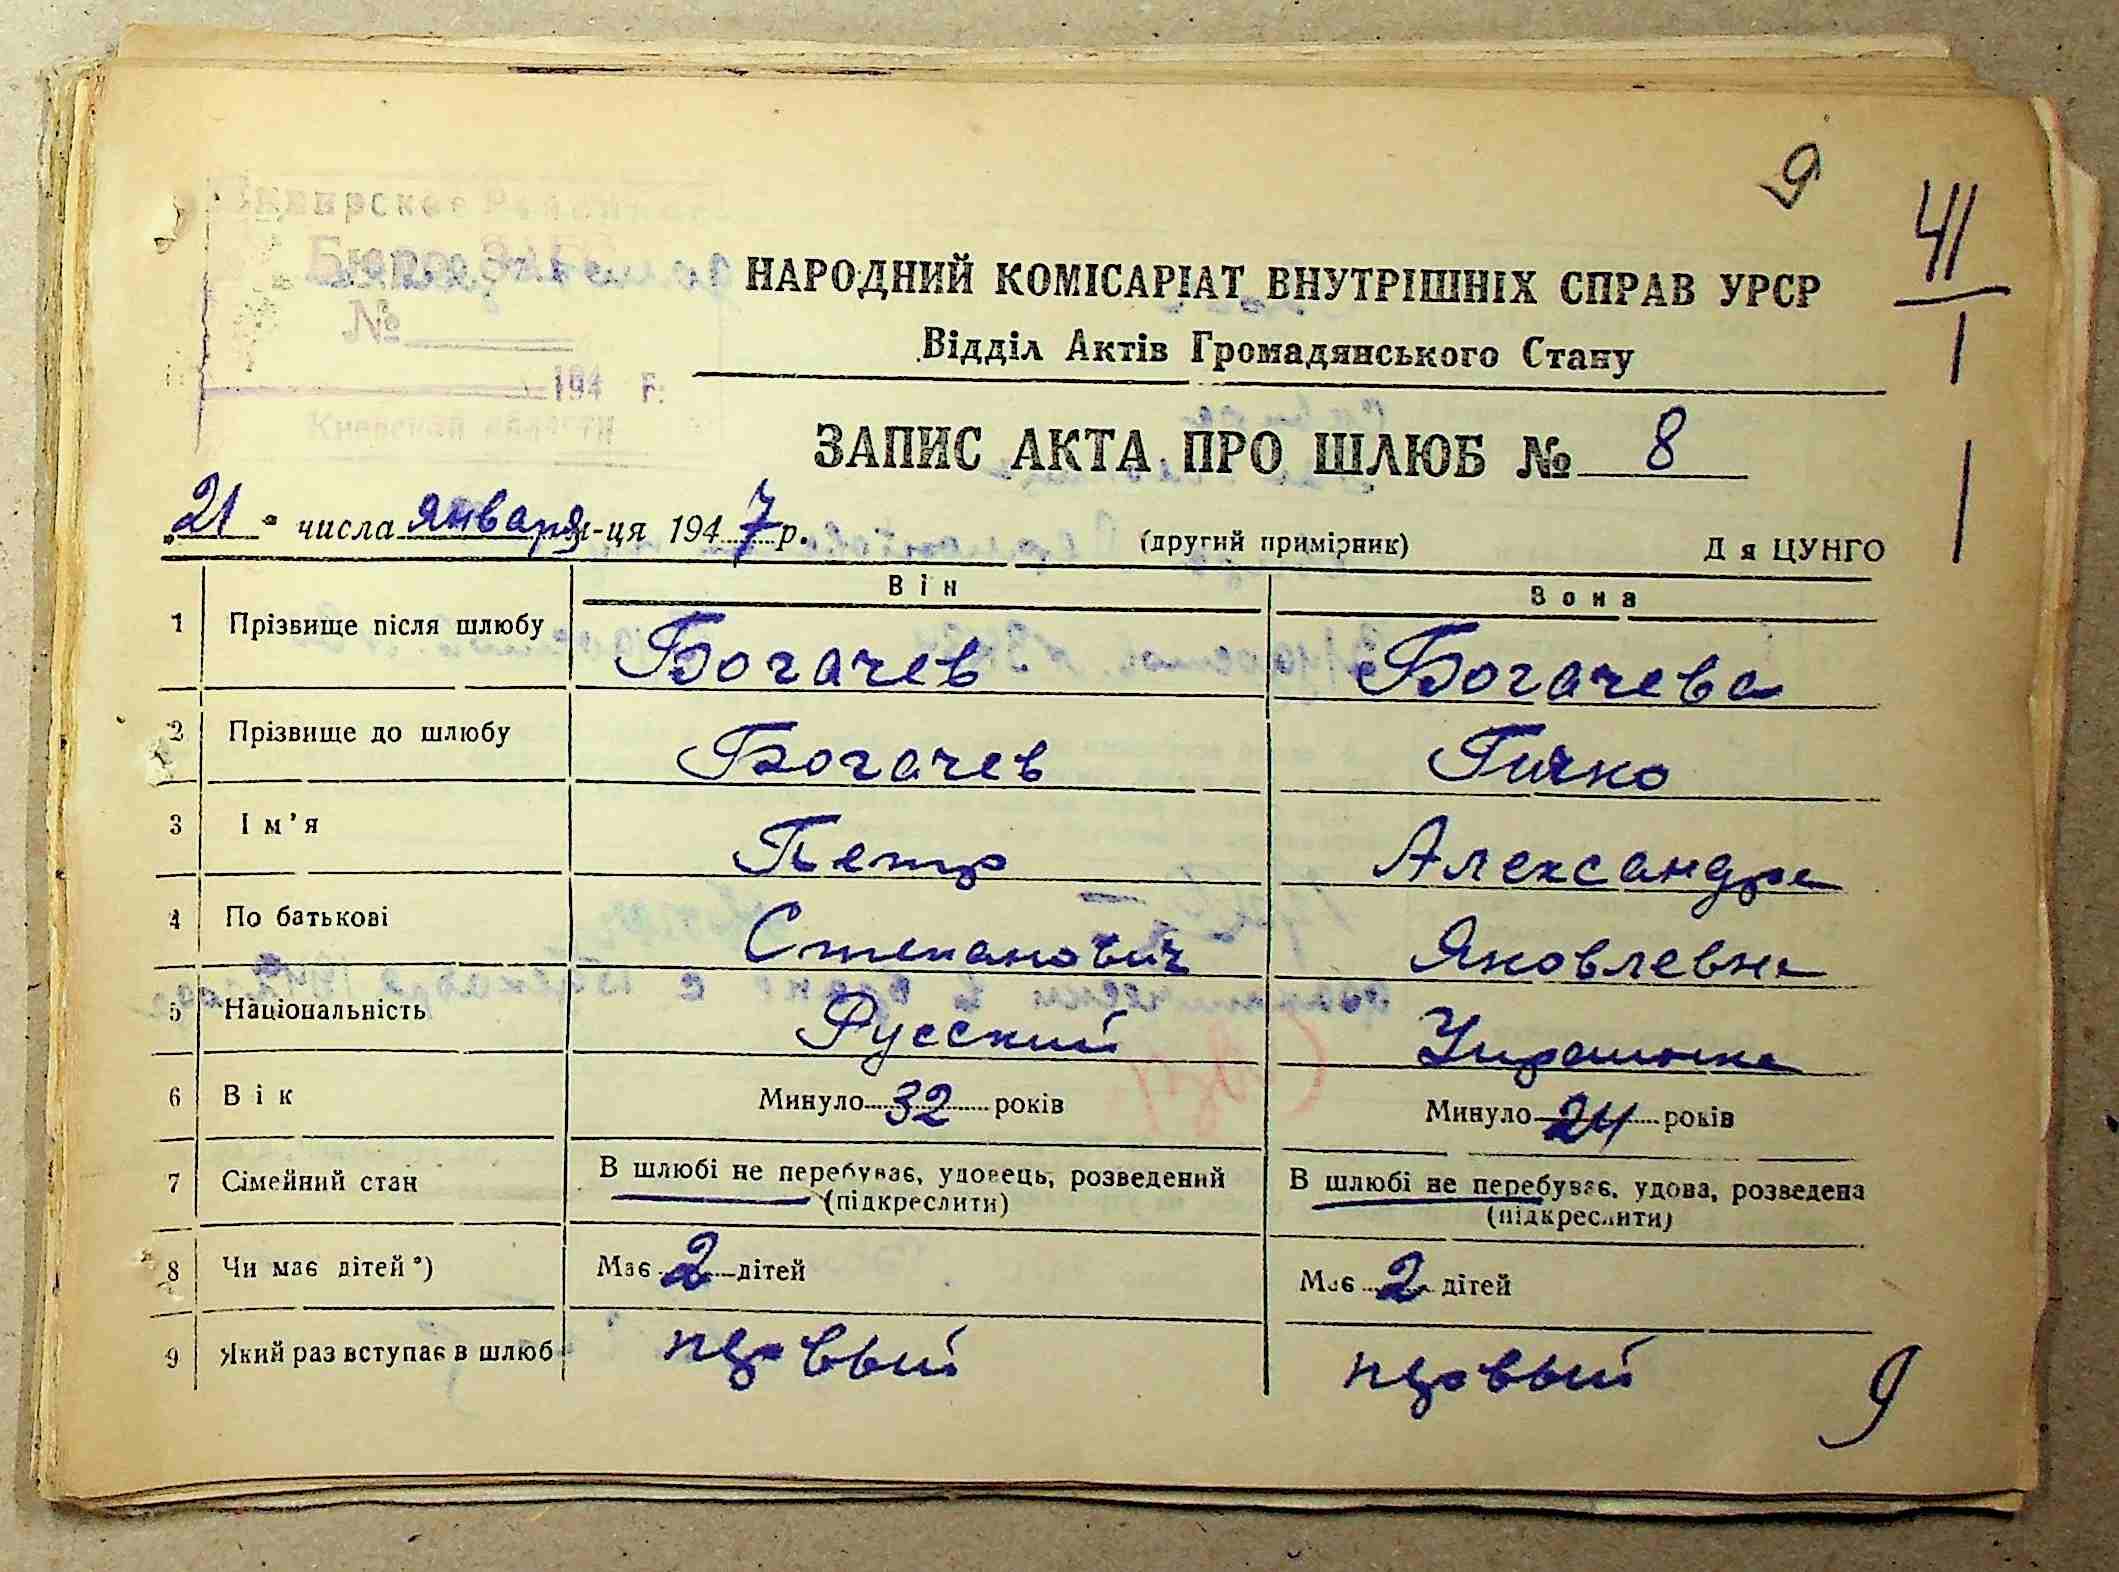 9
41
1
Бюро ЗАГС
№
194 г.
Киевской области
НАРОДНИЙ КОМІСАРІАТ ВНУТРІШНІХ СПРАВ УРСР
Відділ Актів Громадянського Стану
ЗАПИС АКТА ПРО ШЛЮБ № 8
„21" числа января м-ця 1947 р. (другий примірник) Для ЦУНГО
Він Вона
1 Прізвище після шлюбу Богачев Богачева
2 Прізвище до шлюбу Богачев Гичко
3 Ім'я Петр Александра
4 По батькові Степанович Яковлевна
5 Національність Русский Украинка
6 Вік Минуло 32 років Минуло 24 років
7 Сімейний стан В шлюбі не перебуває, удовець, розведений В шлюбі не перебуває, удова, розведена
(підкреслити) (підкреслити)
8 Чи має дітей*) Має 2 дітей Має 2 дітей
9 Який раз вступає в шлюб первый первый
9